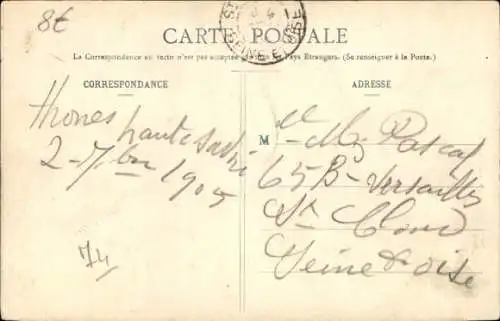 8€
CARTE POSTALE
La Correspondance au recto n'est pas acceptée par tous les Pays Étrangers. (Se renseigner à la Poste.)
CORRESPONDANCE
ADRESSE
Thones
haute Savoie
2-7bre
1905
74
M elle My Pascal
65 B- Versailles
St Cloud
Seine & oise